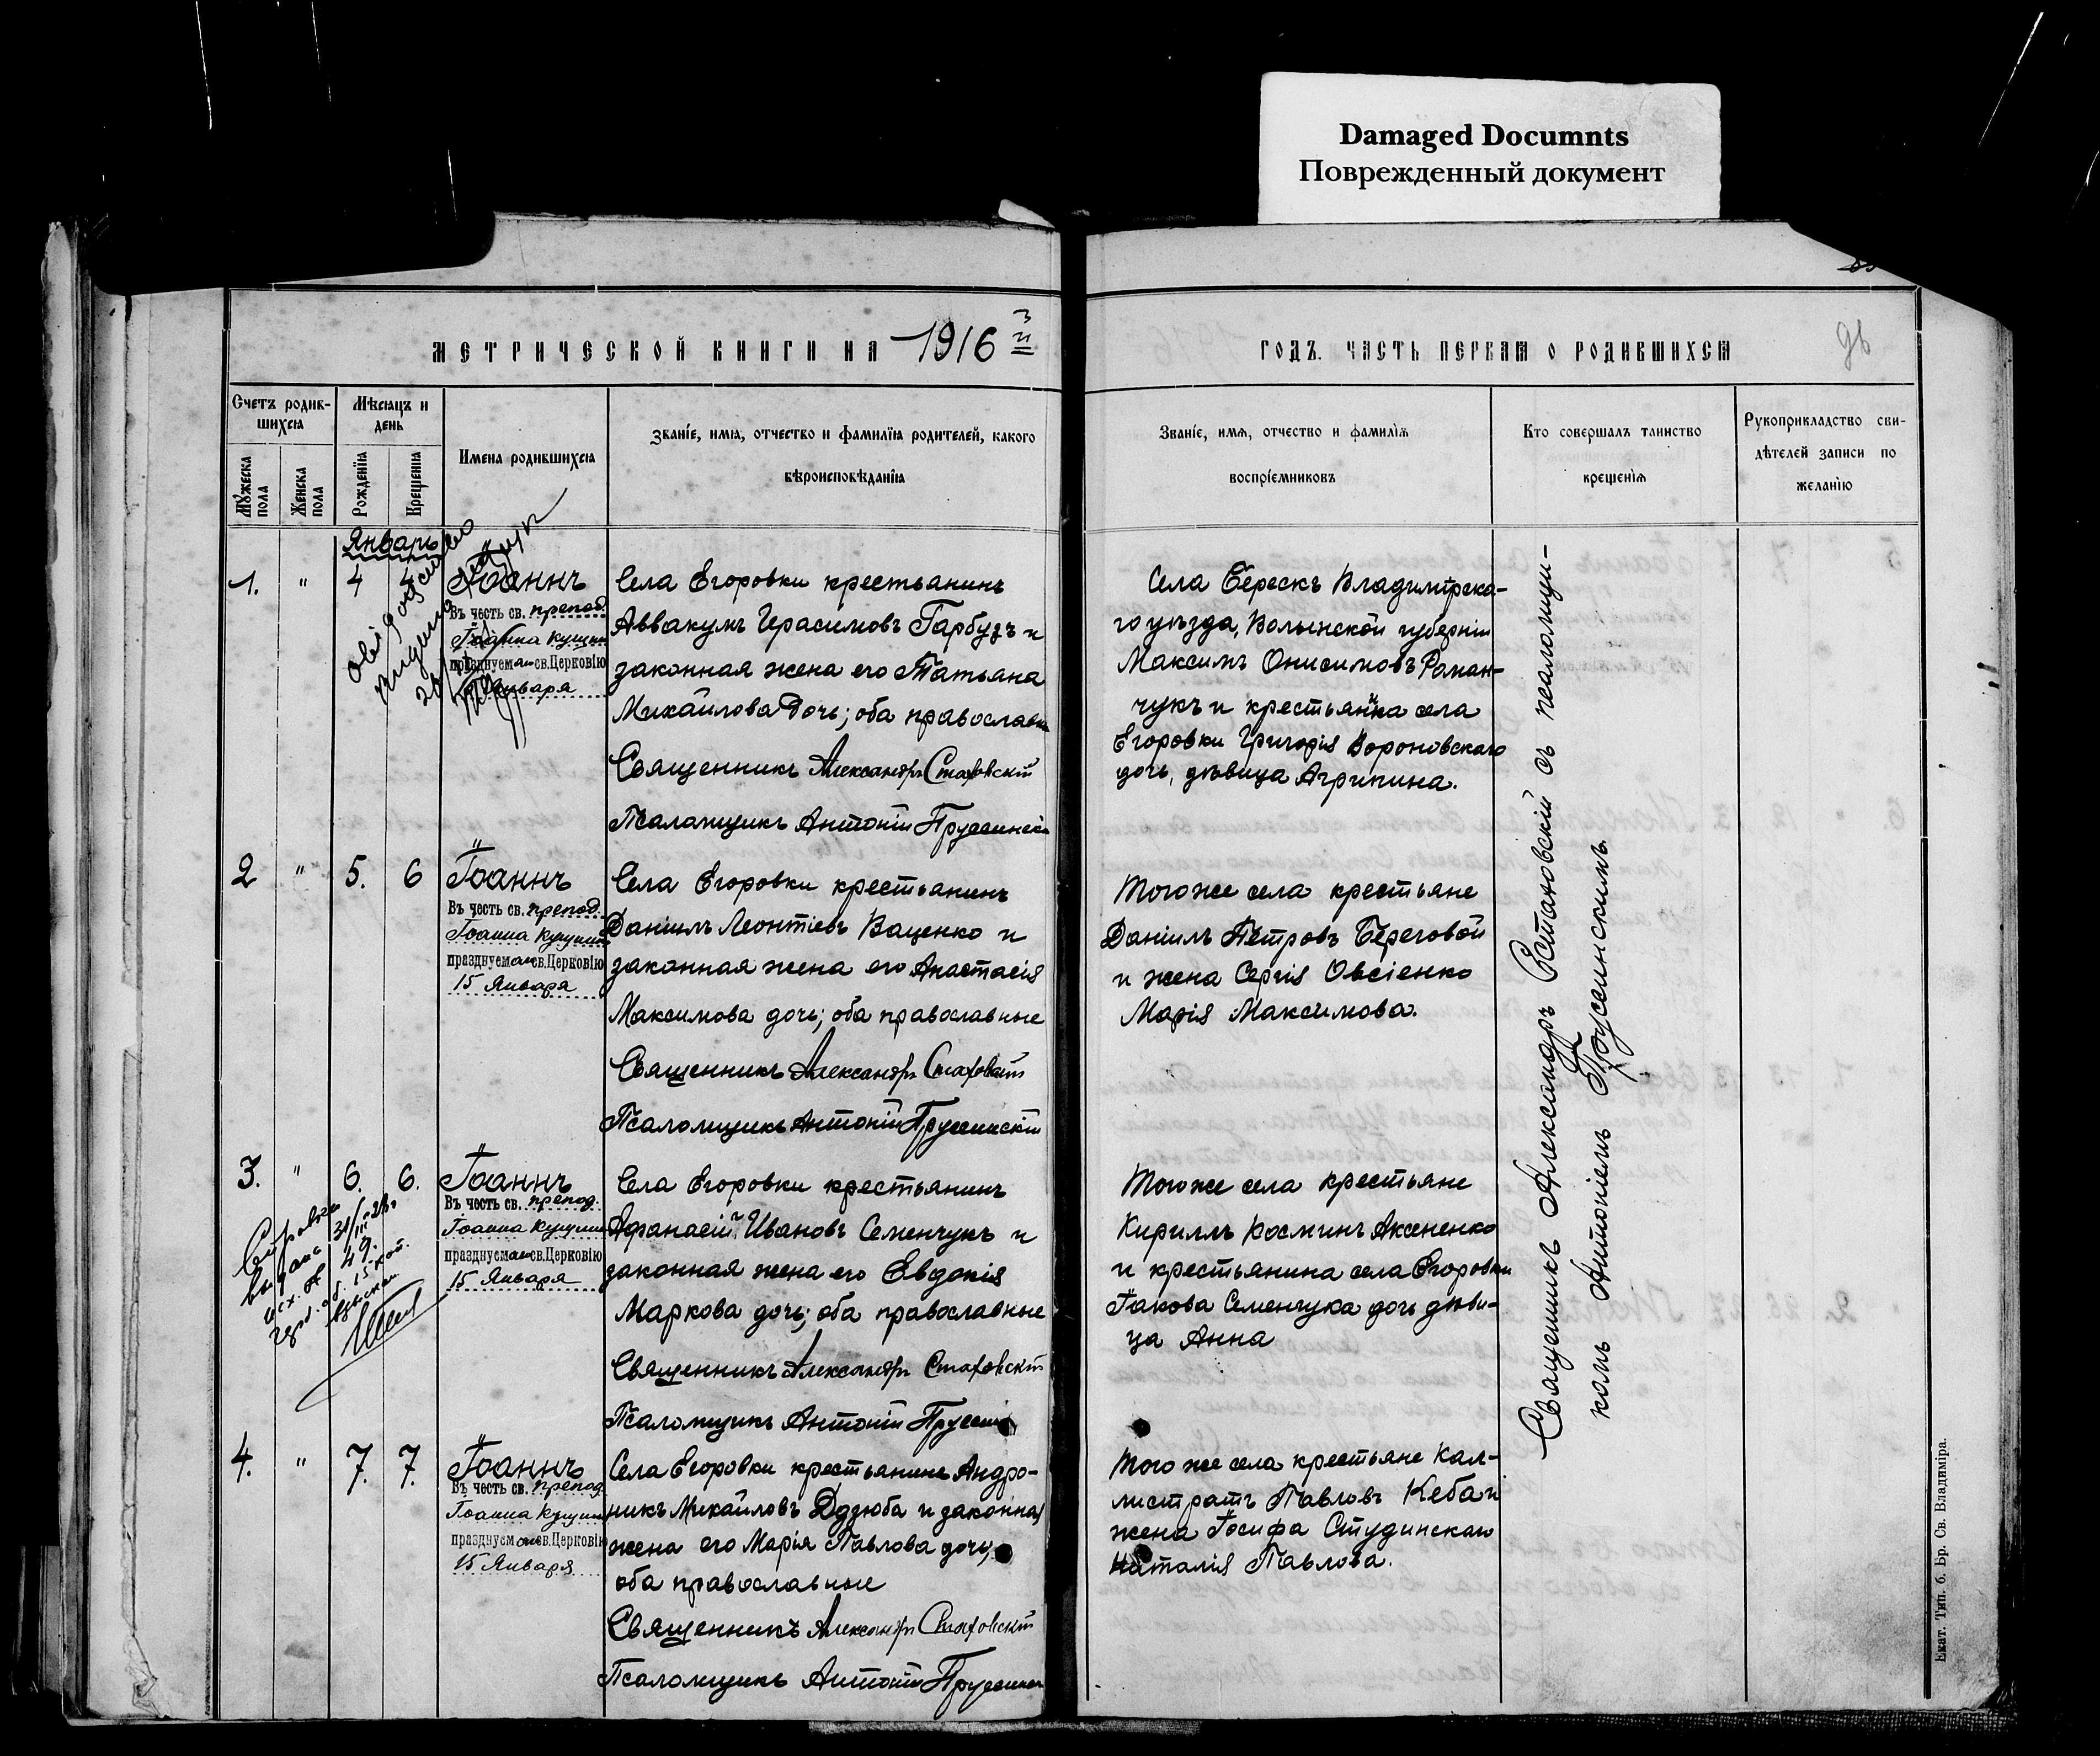 Damaged Documnts
Поврежденный документ
МЕТРИЧЕСКОЙ КНИГИ НА 1916 й
Счетъ родив-
шихся
Мѣсяцъ и
день
Мужеска
пола
Женска
пола
Рожденія
Крещенія
Имена родившихся
Званіе, имя, отчество и фамилія родителей, какого
вѣроисповѣданія
Январь
1. " 4 4 Іоаннъ
Въ честь св. препод.
Іоанна Кущни
празднуемаго св. Церковію
15 Января
Села Егоровки крестьянинъ
Аввакумъ Герасимовъ Гарбузъ и
законная жена его Татьяна
Михайлова дочь; оба православн
Священникъ Александръ Стаховскій
Псаломщикъ Антоній Пруссинскій
2 " 5. 6 Іоаннъ
Въ честь св. препод.
Іоанна Кущник
празднуемаго св. Церковію
15 Января
Села Егоровки крестьянинъ
Даніилъ Леонтіевъ Ваценко и
законная жена его Анастасія
Максимова дочь; оба православные
Священникъ Александръ Стаховскій
Псаломщикъ Антоній Пруссинскій
3. " 6. 6. Іоаннъ
Въ честь св. препод.
Іоанна Кущник
празднуемаго св. Церковію
15 Января
Справка
выдана
49.
Села Егоровки крестьянинъ
Афанасій Ивановъ Семенчукъ и
законная жена его Евдокія
Маркова дочь; оба православные
Священникъ Александръ Стаховскій
Псаломщикъ Антоній Прусси
4. " 7. 7. Іоаннъ
Въ честь св. препод.
Іоанна Кущник
празднуемаго св. Церковію
15 Января
Села Егоровки крестьянинъ Андро-
никъ Михайловъ Дзюба и законная
жена его Марія Павлова дочь;
оба православные
Священникъ Александръ Стаховскій
Псаломщикъ Антоній Пруссинск
ГОДЪ. ЧАСТЬ ПЕРВАЯ О РОДИВШИХСЯ
Званіе, имя, отчество и фамилія
воспріемниковъ
Кто совершалъ таинство
крещенія
Рукоприкладство сви-
дѣтелей записи по
желанію
Села Берескъ Владимірска-
го уѣзда, Волынской губерніи
Максимъ Онисимовъ Роман-
чукъ и крестьянка села
Егоровки Григорія Вороновскаго
дочь, дѣвица Агрипина.
Того же села крестьяне
Даніилъ Петровъ Береговой
и жена Сергія Овсіенко
Марія Максимова.
Того же села крестьяне
Кириллъ Косминъ Аксененко
и крестьянина села Егоровки
Іакова Семенчука дочь дѣви-
ца Анна
Того же села крестьяне Кал-
листратъ Павловъ Кеба и
жена Іосифа Студинскаго
Наталія Павлова.
Священникъ Александръ Стаховскій съ псаломщи-
комъ Антоніемъ Пруссинскимъ.
Екат. Тип. б. Бр. Св. Владиміра.